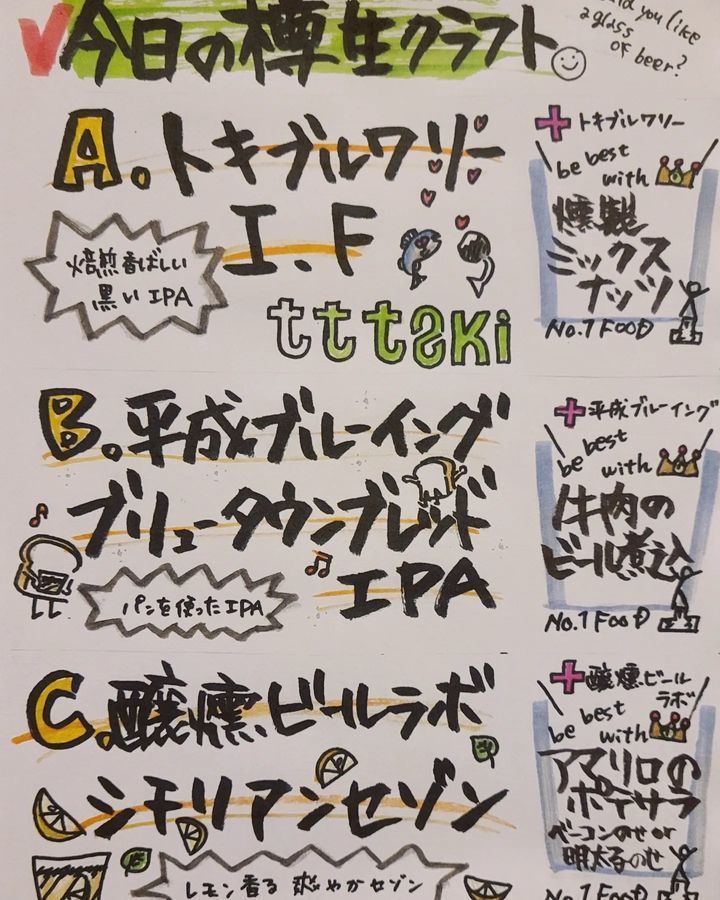 今日の樽生クラフト
you like
a glass
of beer?
A.トキブルワリー
I.F
焙煎香ばしい
黒いIPA
ttt2ki
トキブルワリー
be best
with
燻製
ミックス
ナッツ
No.1 FOOD
B.平成ブルーイング
ブリュータウンブレッド
IPA
パンを使ったIPA
平成ブルーイング
be best
with
牛肉の
ビール煮込
No.1 FOOD
C.醸燻ビールラボ
シチリアンセゾン
レモン香る 爽やかセゾン
醸燻ビール
ラボ
be best
with
アマリロの
ポテサラ
ベーコンのせ or
明太子のせ
No.1 FOOD